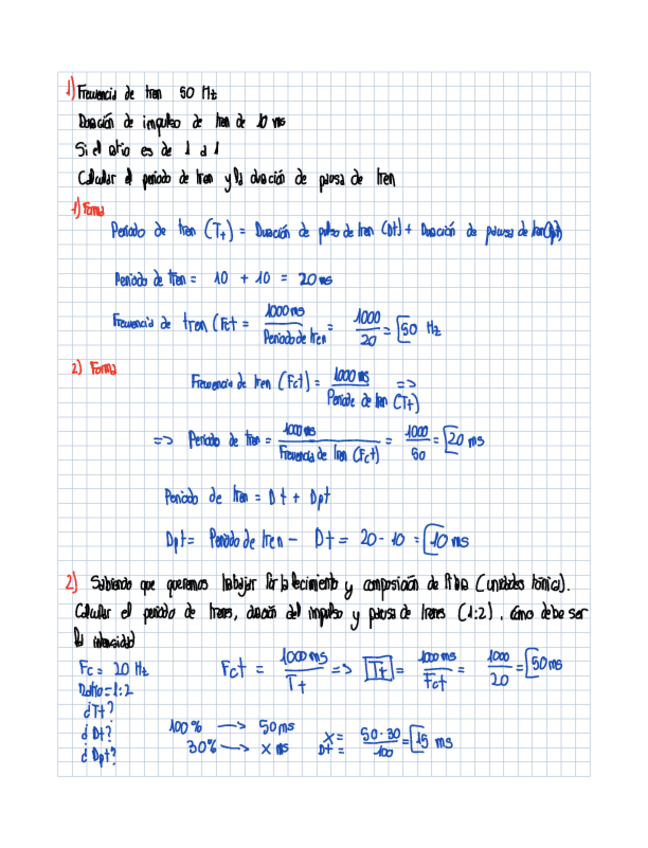 1) Frecuencia de tren 50 Hz
Duración de impulso de tren de 10 ms
Si el ratio es de 1 a 1
Calcular el periodo de tren y la duración de pausa de tren
1) Forma
Periodo de tren (Tt) = Duración de pulso de tren (Dt) + Duración de pausa de tren (Dpt)
Periodo de tren = 10 + 10 = 20 ms
Frecuencia de tren (Fct = 1000 ms / Periodo de tren = 1000 / 20 = 50 Hz
2) Forma
Frecuencia de tren (Fct) = 1000 ms / Periodo de tren (Tt) =>
=> Periodo de tren = 1000 ms / Frecuencia de tren (Fct) = 1000 / 50 = 20 ms
Periodo de tren = Dt + Dpt
Dpt = Periodo de tren - Dt = 20 - 10 = 10 ms
2) Sabiendo que queremos trabajar fortalecimiento y composición de fibra (unidades tónica).
Calcular el periodo de trenes, duración del impulso y pausa de trenes (1:2). Cómo debe ser
la intensidad
Fc = 20 Hz
Ratio = 1:2
¿Tt?
¿Dt?
¿Dpt?
Fct = 1000 ms / Tt => Tt = 1000 ms / Fct = 1000 / 20 = 50 ms
100% -> 50 ms
30% -> x ms
x = Dt = 50 · 30 / 100 = 15 ms